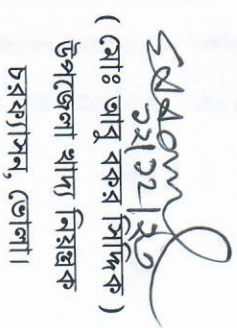 ১২/১২/২৩
(মোঃ আবু বকর সিদ্দিক)
উপজেলা খাদ্য নিয়ন্ত্রক
চরফ্যাসন, ভোলা।